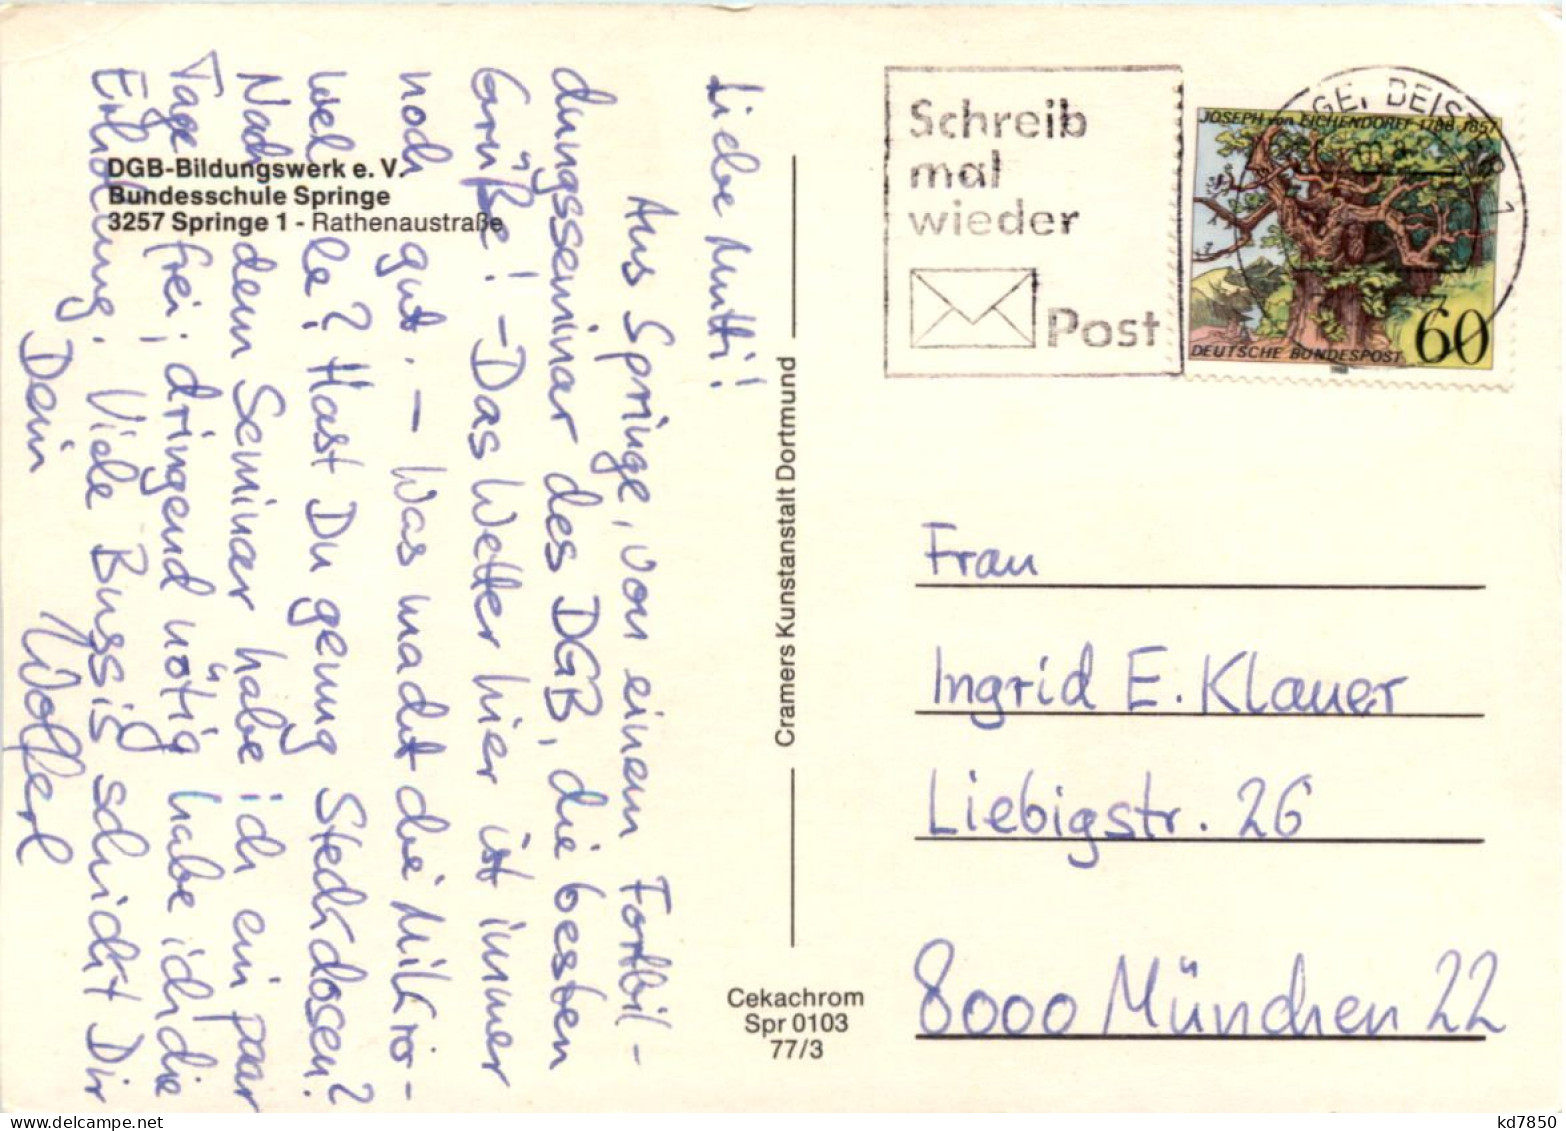 DGB-Bildungswerk e. V.
Bundesschule Springe
3257 Springe 1 - Rathenaustraße
Liebe Mutti!
Aus Springe, von einem Fortbil-
dungsseminar des DGB, die besten
Grüße! - Das Wetter hier ist immer
noch gut. - Was macht die Mikro-
welle? Hast Du genug Steckdosen?
Nach dem Seminar habe ich ein paar
Tage frei; dringend nötig habe ich die
Erholung. Viele Bussis schickt Dir
Dein Wolferl
Cramers Kunstanstalt Dortmund
Cekachrom
Spr 0103
77/3
Schreib
mal
wieder
Post
GE, DEISTER 1
JOSEPH von EICHENDORFF 1788-1857
DEUTSCHE BUNDESPOST 60
Frau
Ingrid E. Klauer
Liebigstr. 26
8000 München 22
www.delcampe.net
kd7850